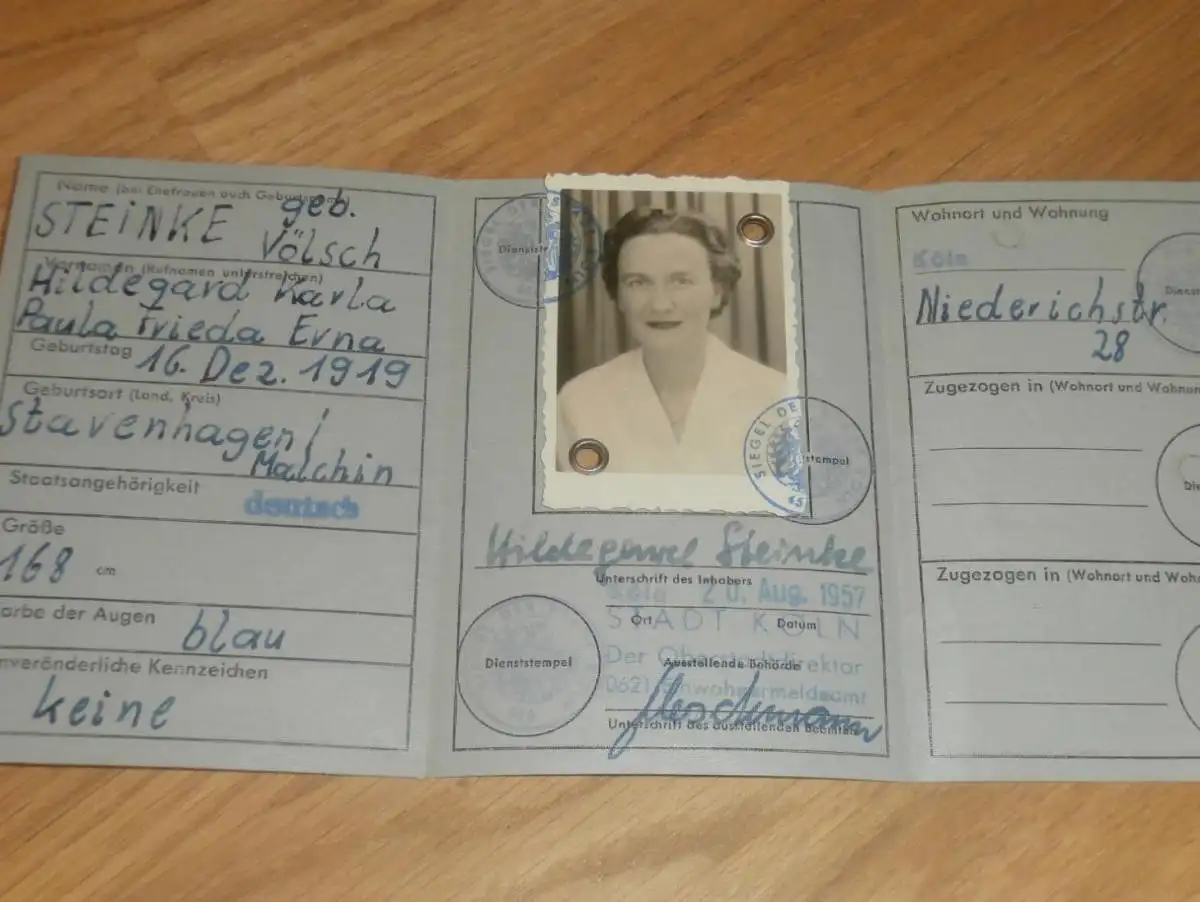 Name (bei Ehefrauen auch Geburtsname)
STEINKE geb.
Völsch
Vornamen (Rufnamen unterstreichen)
Hildegard Karla
Paula Frieda Erna
Geburtstag 16. Dez. 1919
Geburtsort (Land, Kreis)
Stavenhagen/
Malchin
Staatsangehörigkeit
deutsch
Größe
168 cm
arbe der Augen
blau
nveränderliche Kennzeichen
keine
SIEGEL DE
Dienstste
SIEGEL DE
stempel
Hildegard Steinke
Unterschrift des Inhabers
Köln 20. Aug. 1957
Ort Datum
STADT KÖLN
Dienststempel
Der Oberstadtdirektor
Ausstellende Behörde
Einwohnermeldeamt
Unterschrift des ausstellenden Beamten
Wohnort und Wohnung
Köln
Niederichstr.
28
Dienst
Zugezogen in (Wohnort und Wohnun
Die
Zugezogen in (Wohnort und Woh